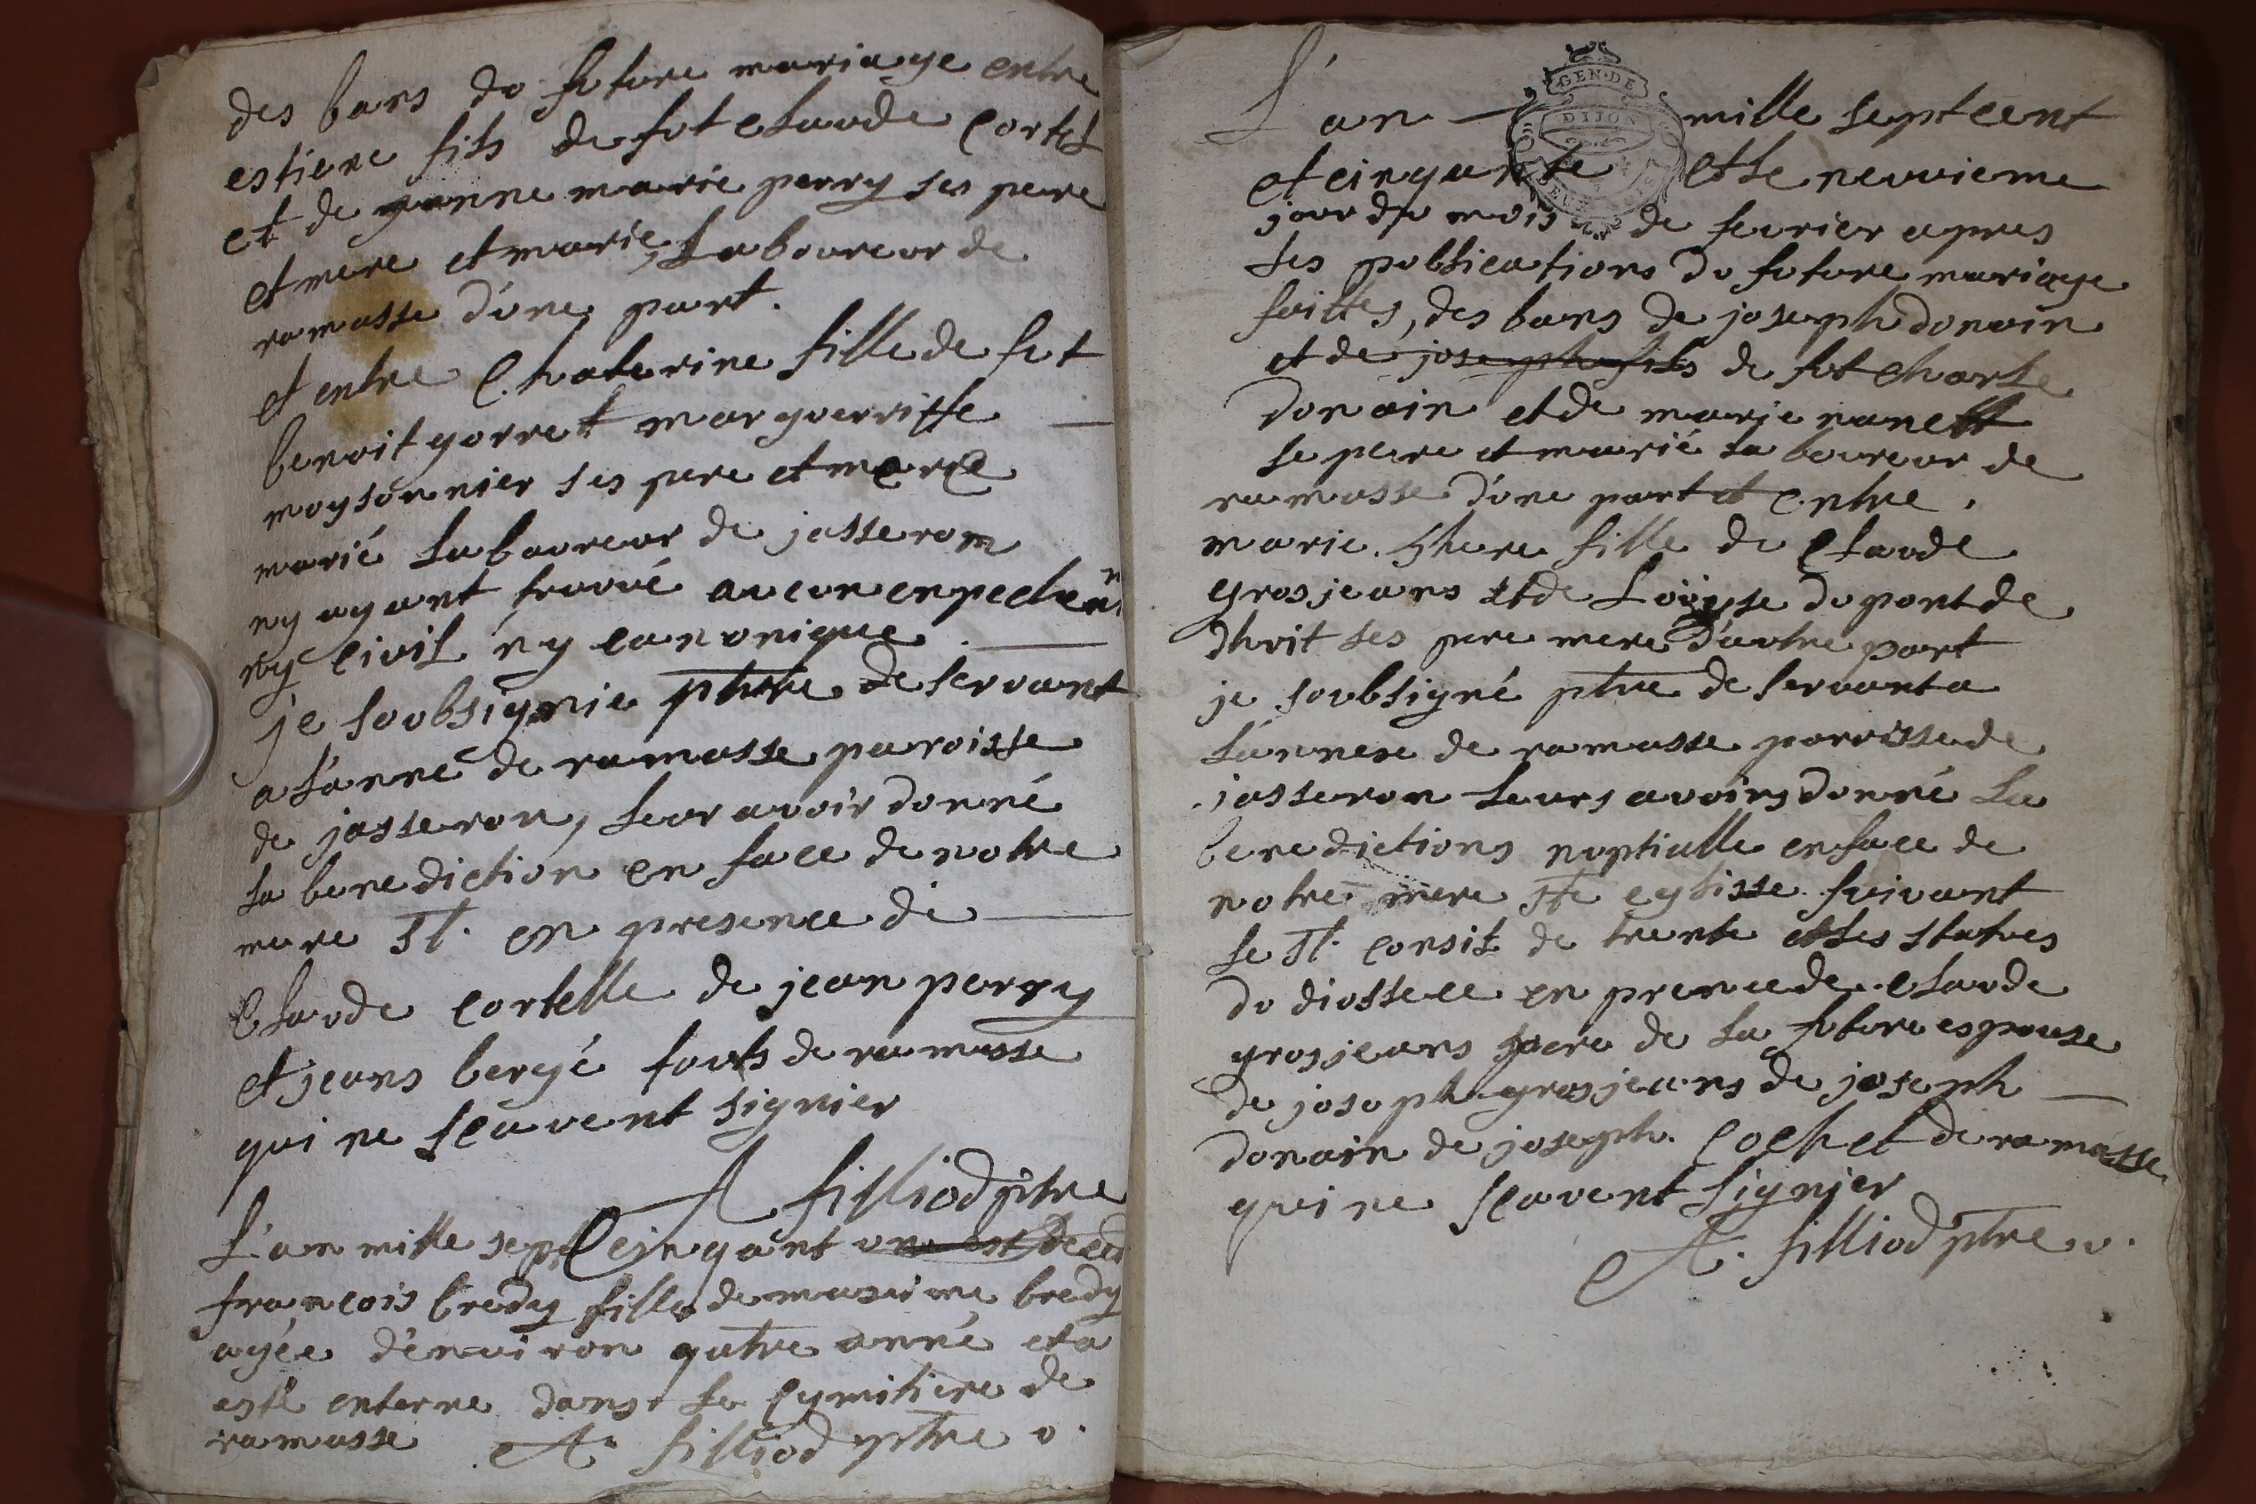 des bans du future mariage entre
estiene fils de fut Claude Cortet
et de janne marie perry ses pere
et mere et marie, laboureur de
ramasse d'une part.
et entre Chaterine fille de fut
benoit gorret marguerritte
moysonnier ses pere et mere
marié laboureur de jasseron
ny ayant trouvé aucun enpechem
ny civil ny canonique
je soubsignie ptre de servant
a l'anne de ramasse paroisse
de jasseron, leur avoir donné
la benediction en face de notre
mere St. en presence de
Claude cortelle de jean perry
et jeans bergé touts de ramasse
qui ne scavent signier
A filliod ptre
L'an mille sept Cinqant une est deced
francois bredy fille de maxime bredy
agée d'environ qutre anné et a
esté enterne dans la Cymitiere de
ramasse A. filliod ptre v.
GEN. DE
DIJON
L'an mille sept cent
et cinquante et le neuvieme
jour du mois de fevrier apres
les publications du future mariage
faittes, des bans de joseph donain
et de joseph fils de fut Charle
Donain et de marie nanett
se pere et marié laboureur de
ramasse d'une part et entre
marie fille de Claude
grosjeans et de Louyse du pont de
dhuit ses pere mere d'autre part
je soubsigné ptre de servant a
l'annexe de ramasse parroisse de
jasseron leurs avoirs donné la
benedictions nuptialle en face de
notre mere Ste eglisse suivant
le St. consil de trente et les statues
du diossece en prence de Claude
grosjeans pere de la future espouse
de josoph grosjeans de joseph
donain de joseph Cochet de ramasse
qui ne scavent signier
A. filliod ptre v.